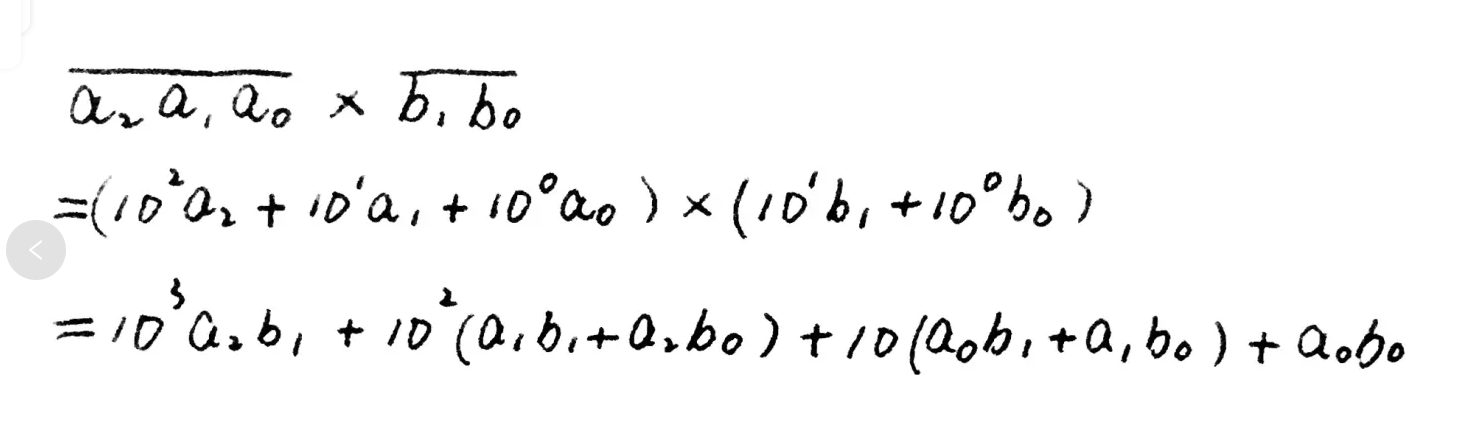 a₂a₁a₀ × b₁b₀
=(10²a₂ + 10¹a₁ + 10⁰a₀) × (10¹b₁ + 10⁰b₀)
= 10³a₂b₁ + 10²(a₁b₁+a₂b₀) + 10(a₀b₁+a₁b₀) + a₀b₀